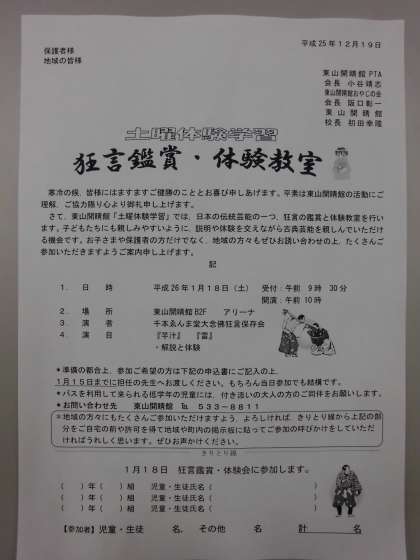 平成25年12月19日
保護者様
地域の皆様
東山開睛館PTA
会長 小谷靖志
東山開睛館おやじの会
会長 阪口彰一
東山開睛館
校長 初田幸隆
土曜体験学習
狂言鑑賞・体験教室
寒冷の候、皆様にはますますご健勝のこととお喜び申しあげます。平素は東山開睛館の活動にご
理解、ご協力賜り心より御礼申し上げます。
さて、東山開睛館「土曜体験学習」では、日本の伝統芸能の一つ、狂言の鑑賞と体験教室を行い
ます。子どもたちにも親しみやすいように、説明や体験を交えながら古典芸能を親しんでいただけ
る機会です。お子さまや保護者の方だけでなく、地域の方々もぜひお誘い合わせの上、たくさんご
参加いただきますようご案内申し上げます。
記
1. 日時 平成26年1月18日(土) 受付:午前 9時 30分
開演:午前 10時
2. 場所 東山開睛館B2F アリーナ
3. 演者 千本ゑんま堂大念佛狂言保存会
4. 演目 『芋汁』 『雷』
・解説と体験
*準備の都合上、参加ご希望の方は下記の申込書にご記入の上、
1月15日までに担任の先生へお渡しください。もちろん当日参加でも結構です。
*バスを利用して来られる低学年の児童には、付き添いの大人の方のご同伴をお願いします。
*お問い合わせ先 東山開睛館 ℡ 533-8811
*地域の方々にもたくさんご参加いただけますよう、よろしければ、きりとり線から上記の部
分をご自宅の前や許可を得て地域や町内の掲示板に貼ってご参加の呼びかけをしていただ
ければうれしく思います。ぜひお声かけください。
きりとり線
1月18日 狂言鑑賞・体験会に参加します。
( )年( )組 児童・生徒氏名( )
( )年( )組 児童・生徒氏名( )
( )年( )組 児童・生徒氏名( )
【参加者】児童・生徒 名、その他 名 計 名